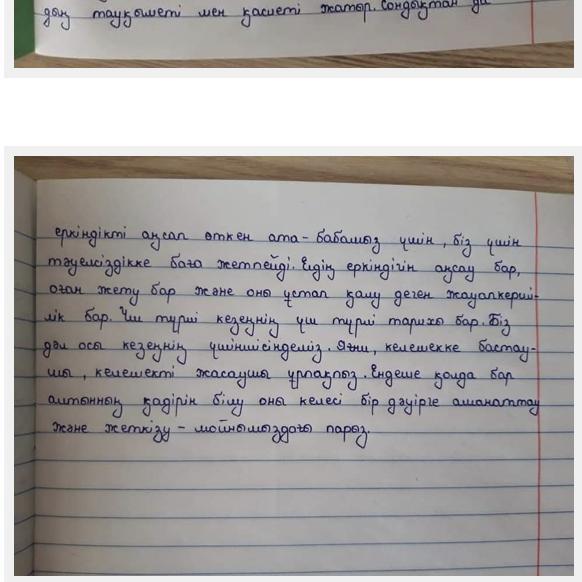 дың тауқыметі мен қасиеті жатыр. Сондықтан да
еркіндікті аңсап өткен ата-бабамыз үшін, біз үшін
тәуелсіздікке баға жетпейді. Елдің еркіндігін аңсау бар,
оған жету бар және оны ұстап қалу деген жауапкерші-
лік бар. Үш түрлі кезеңнің үш түрлі тарихы бар. Біз
дәл осы кезеңнің үшіншісінделіз. Яғни, келешекке бастау-
шы, келешекті жасаушы ұрпақпыз. Ендеше қолда бар
алтынның қадірін білу оны келесі бір дәуірге аманаттау
және жеткізу - мойнымыздағы парыз.